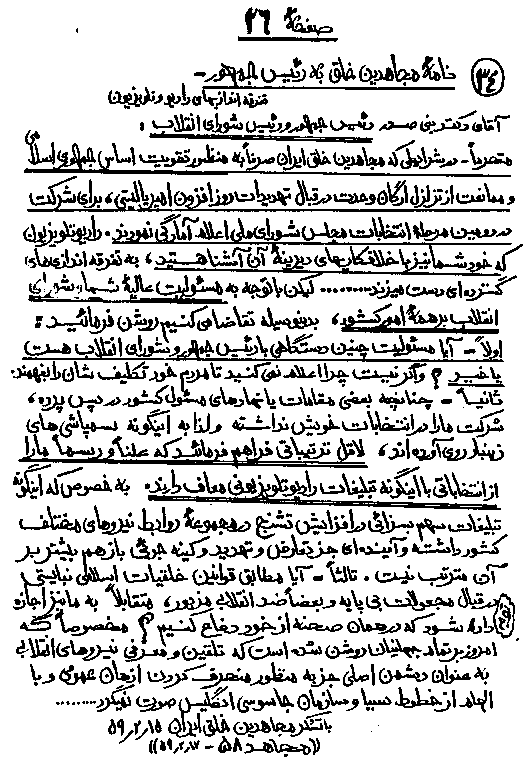 صفحهٔ ۲۶
۳۴ نامهٔ مجاهدین خلق به رئیس جمهور -
تفرقه اندازیهای رادیو تلویزیون
آقای دکتر بنی صدر رئیس جمهور و رئیس شورای انقلاب :
محترماً - در شرایطی که مجاهدین خلق ایران صرفاً به منظور تقویت اساس جمهوری اسلامی
و ممانعت از تزلزل ارکان وحدت در قبال تهدیدات روزافزون امپریالیستی، برای شرکت
در دومین مرحلهٔ انتخابات مجلس شورای ملی اعلام آمادگی نمودند. رادیو تلویزیون
که خود شما نیز با خلافکاریهای دیرینهٔ آن آشنا هستید، به تفرقه اندازی های
گسترده ای دست میزند........ لیکن با توجه به مسئولیت عالیهٔ شما و شورای
انقلاب بر همهٔ امور کشور، بدینوسیله تقاضا می کنیم روشن فرمائید :
اولاً - آیا مسئولیت چنین دستگاهی با رئیس جمهور و شورای انقلاب هست
یا خیر ؟ و اگر نیست چرا اعلام نمی کنید تا مردم خود تکلیف شان را بفهمند:
ثانیاً - چنانچه بعضی مقامات یا نهادهای مسئول کشور در پس پرده،
شرکت ما را در انتخابات خوش نداشته و لذا به اینگونه سمپاشی های
زهردار روی آورده اند، لااقل ترتیباتی فراهم فرمائید که علناً و رسماً ما را
از انتخاباتی با اینگونه تبلیغات رادیو تلویزیونی معاف دارند. به خصوص که اینگونه
تبلیغات سهم بسزائی در افزایش تشنج در مجموعهٔ روابط نیروهای مختلف
کشور داشته و آینده ای جز تعارض و تهدید و کینه جوئی بازهم بیشتر بر
آن مترتب نیست. ثالثاً - آیا مطابق قوانین خلقیات اسلامی نبایستی
در قبال مجعولات بی پایه و بعضاً ضد انقلابی مزبور، متقابلاً به ما نیز اجازه
داده شود که در همان صحنه از خود دفاع کنیم ؟ مخصوصاً که
امروز بر تمام جهانیان روشن شده است که تلقین و معرفی نیروهای انقلابی
به عنوان دشمن اصلی جز به منظور منحرف کردن اذهان عمومی و با
الهام از خطوط سیا و سازمان جاسوسی انگلیس صورت نمیگیرد........
با تشکر مجاهدین خلق ایران ۵۹٫۲٫۱۵
((مجاهد ۵۸ - ۵۹٫۲٫۱۷))